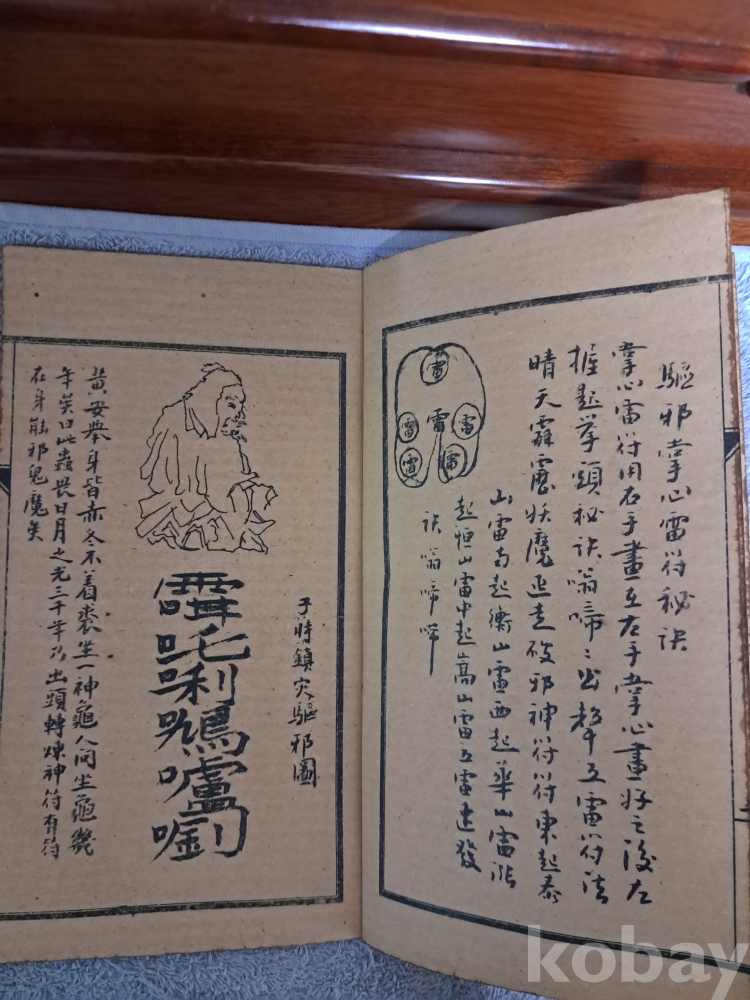 驅邪掌心雷符秘訣
掌心雷符用右手畫在左手掌心畫好之後左
握起拳頭秘訣嗡啼〻出聲五雷符法
晴天霹靂妖魔退走破邪神符符東起泰
山雷南起衡山雷西起華山雷
起恒山雷中起嵩山雷五雷速發
訣嗡啼啼
雷
雷
雷
雷
雷
雷
子時鎮灾驅邪圖
唎
嚧
嚠
黃安舉身皆赤冬不着裘坐一神龜人问坐龜幾
年矣曰此蟲畏日月之光三千年乃出頭轉煉神符有符
在身能祁鬼魔矣
kobay